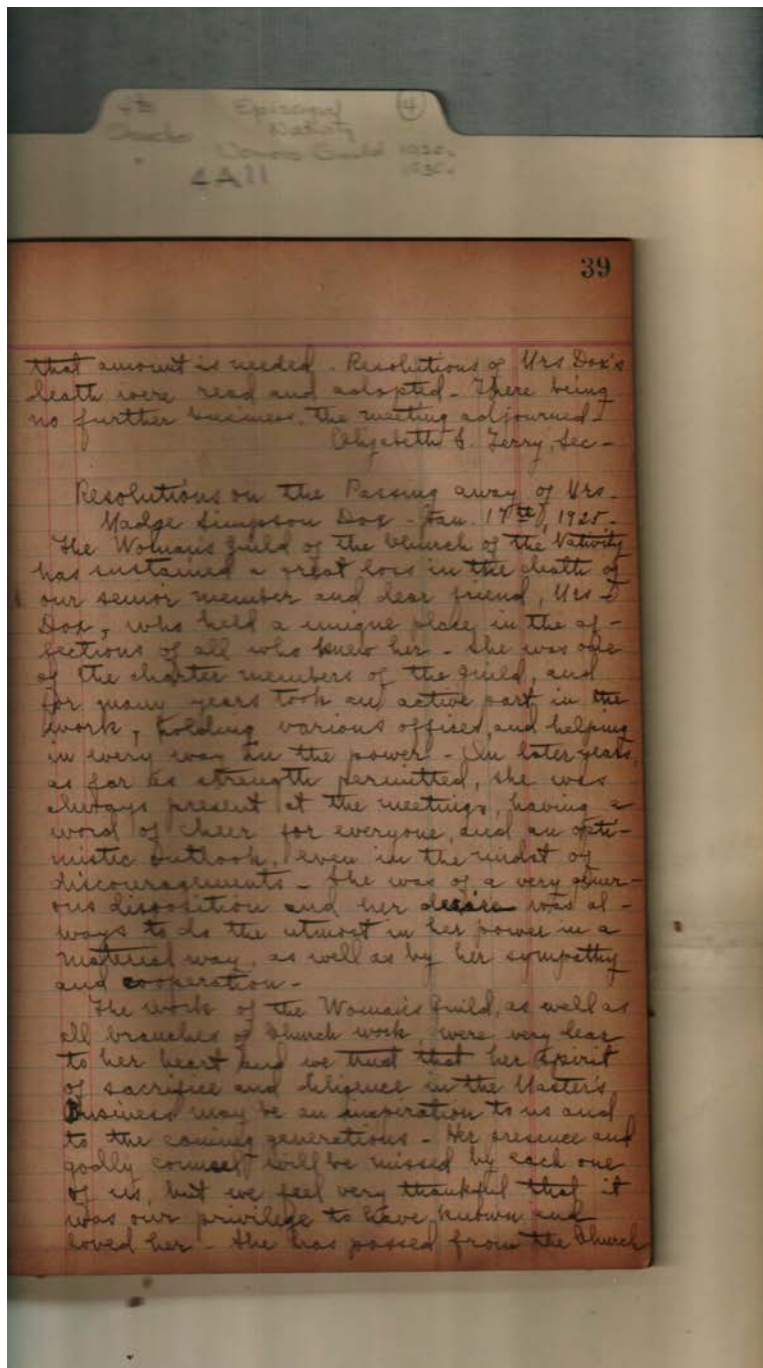 Episcopal
4
Nativity
Womans Guild 1920s
1930s
4A11
39
that amount is needed. Resolutions of Mrs Dox's
death were read and adopted - There being
no further business, the meeting adjourned -
Elizabeth S. Terry, Sec -
Resolutions on the Passing away of Mrs -
Madge Simpson Dox - Jan. 17th, 1925 -
The Woman's Guild of the Church of the Nativity
has sustained a great loss in the death of
our senior member and dear friend, Mrs -
Dox, who held a unique place in the af-
fections of all who knew her - She was one
of the charter members of the Guild, and
for many years took an active part in the
work, holding various offices, and helping
in every way in the power - In later years,
as far as strength permitted, she was
always present at the meetings, having a
word of cheer for everyone, and an opti-
mistic outlook, even in the midst of
discouragements - She was of a very gener-
ous disposition and her desire was al-
ways to do the utmost in her power in a
material way, as well as by her sympathy
and cooperation -
The work of the Woman's Guild, as well as
all branches of Church work, were very dear
to her heart and we trust that her spirit
of sacrifice and diligence in the Master's
Business may be an insperation to us and
to the coming generations - Her presence and
godly counsel will be missed by each one
of us, but we feel very thankful that it
was our privilege to have known and
loved her - She has passed from the Church